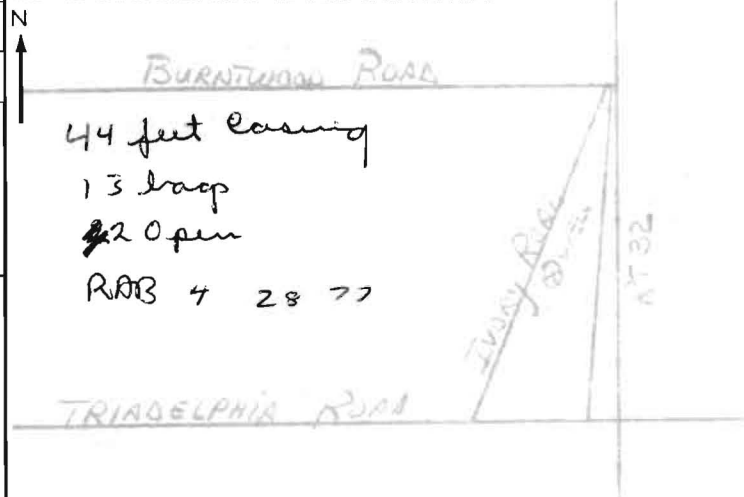 N
BURNTWOOD ROAD
44 feet Casing
13 bags
2 Open
RAB 4 28 77
IVORY ROAD
WELL
RT 32
TRIADELPHIA ROAD